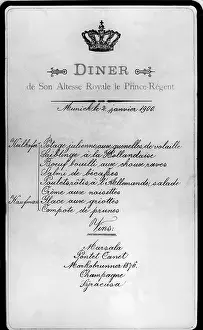 DINER
de Son Altesse Royale le Prince-Régent
Munich le 4 janvier 1900.
Potage julienne aux quenelles de volaille
Saiblinge à la Hollandaise
Boeuf bouilli aux choux raves
Salmi de bécasses
Poulets rôtis à l'Allemande, salade
Crème aux noisettes
Kaufmann Glace aux griottes
Compote de prunes
Vins:
Marsala
Pontet Canet
Markobrunner 1876.
Champagne
Syracusa